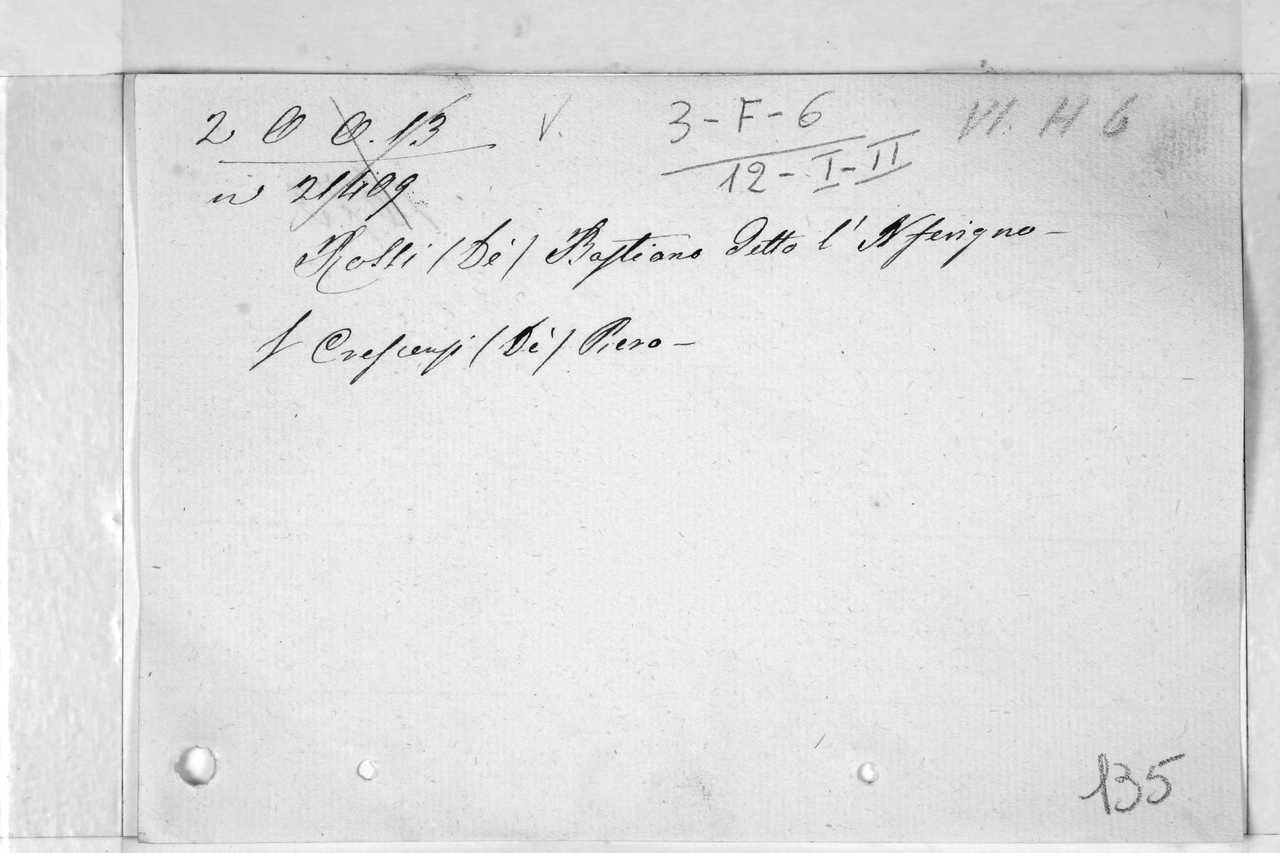 2 O O. 13 V. 3-F-6 VI. H 6
n 21409 12-I-II
Rossi (De') Bastiano detto l'Nferigno-
V Crescenzi (De') Piero-
135